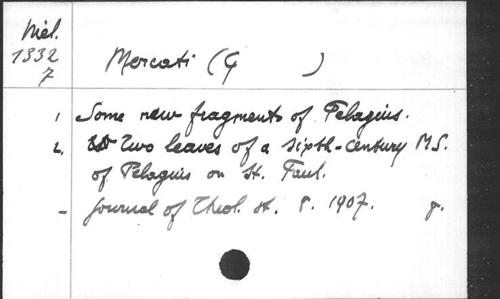 Miél.
1332
7
Mercati (G )
1. Some new fragments of Pelagius.
2. Two leaves of a sixth-century MS.
of Pelagius on St. Paul.
- Journal of Theol. st. 8. 1907. 8.